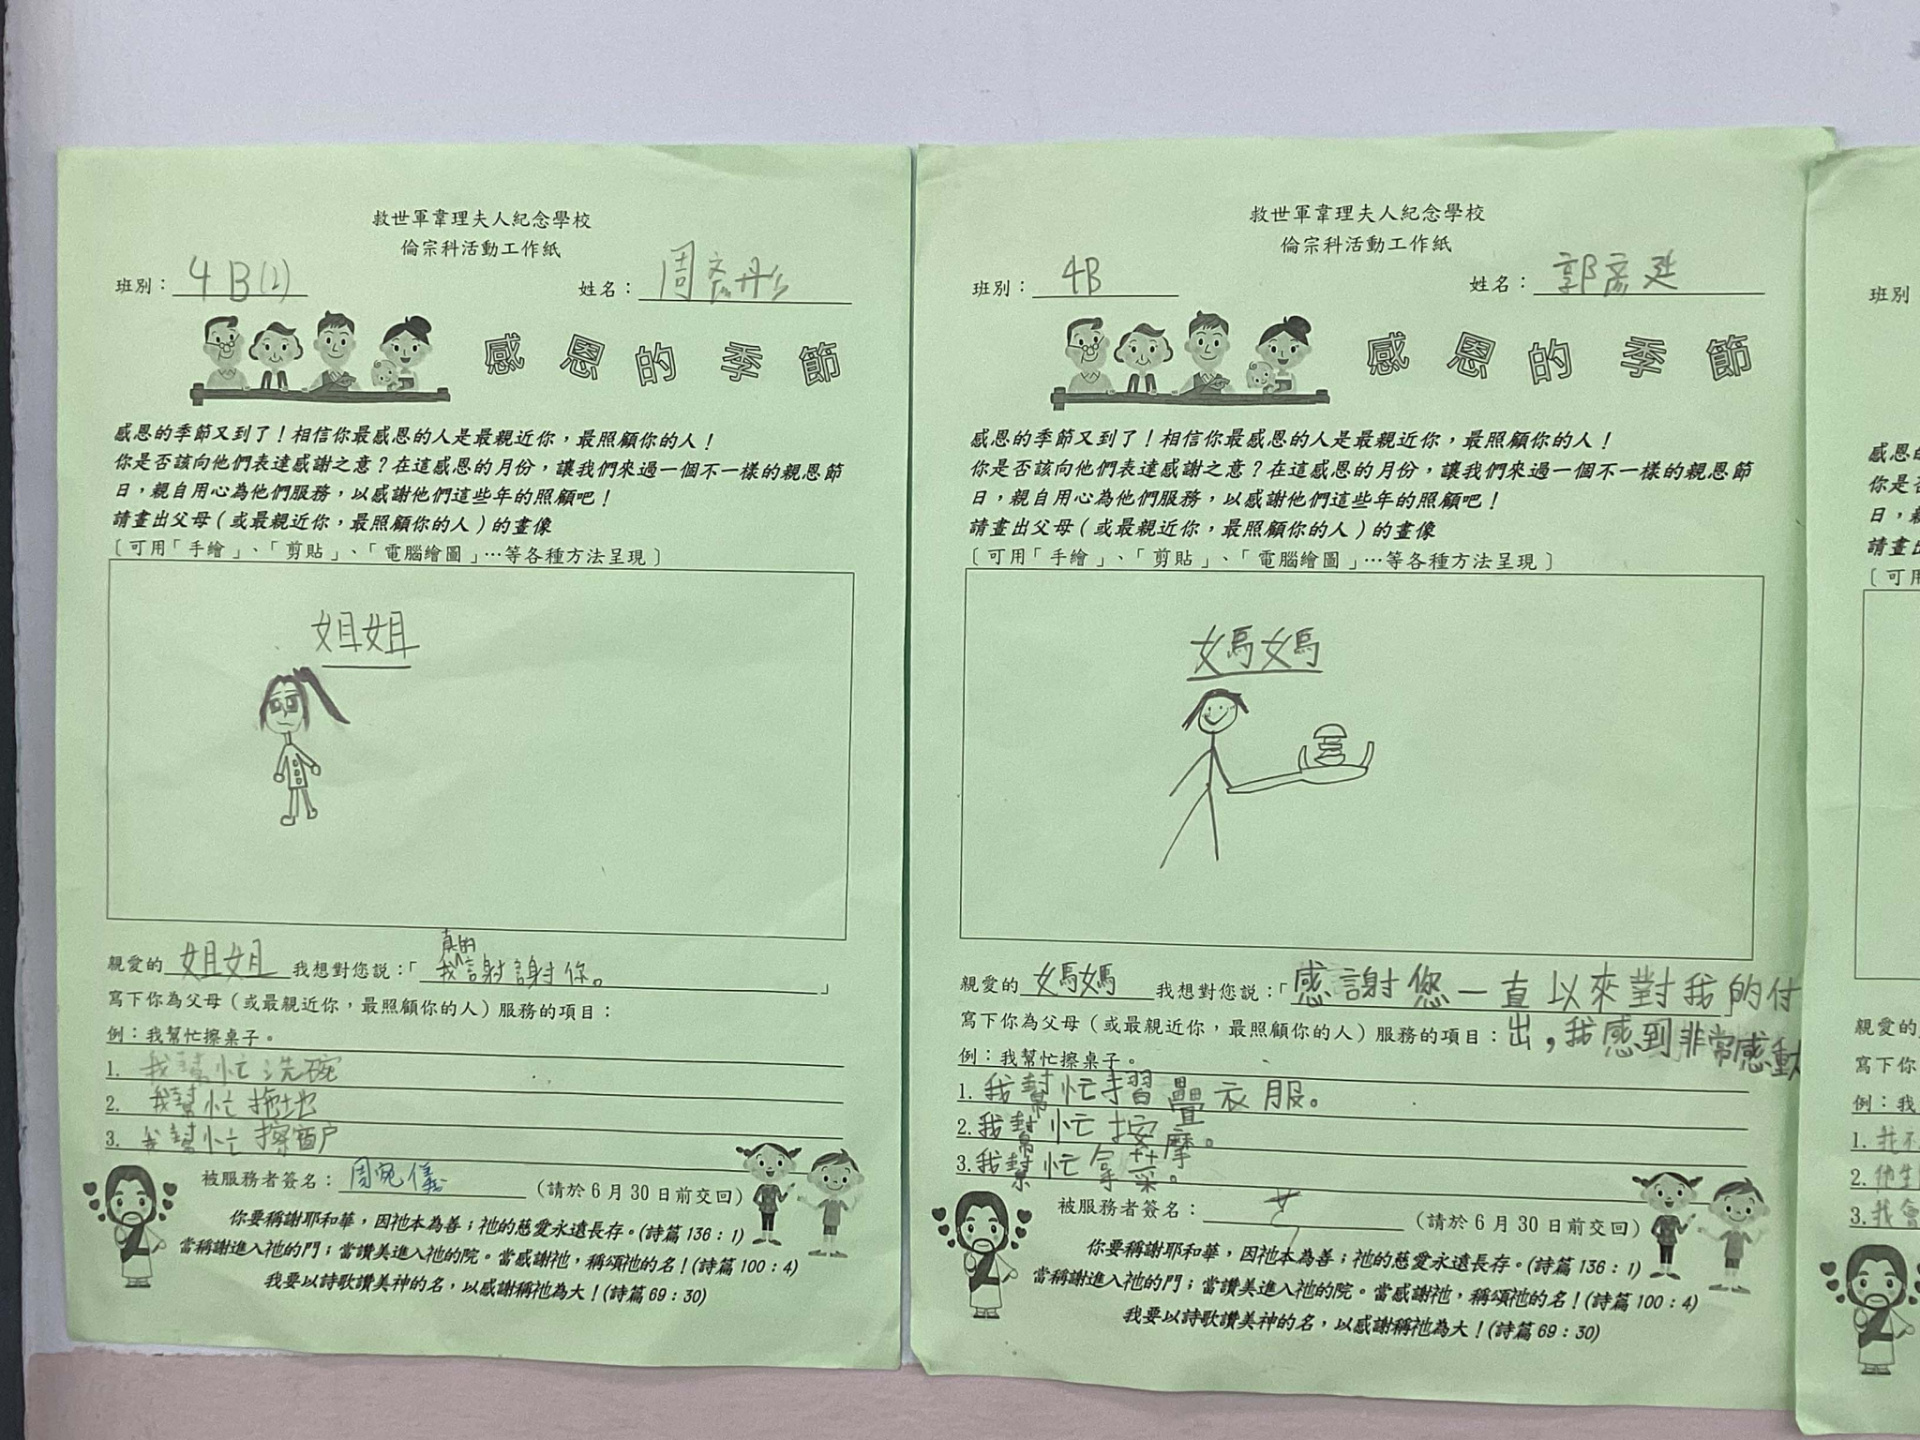 救世軍韋理夫人紀念學校
倫宗科活動工作紙
班別：4B(2) 姓名：周彤
感恩的季節
感恩的季節又到了！相信你最感恩的人是最親近你，最照顧你的人！
你是否該向他們表達感謝之意？在這感恩的月份，讓我們來過一個不一樣的親恩節
日，親自用心為他們服務，以感謝他們這些年的照顧吧！
請畫出父母（或最親近你，最照顧你的人）的畫像
〔可用「手繪」、「剪貼」、「電腦繪圖」…等各種方法呈現〕
姐姐
親愛的 姐姐 我想對您説：「我真的謝謝你。」
寫下你為父母（或最親近你，最照顧你的人）服務的項目：
例：我幫忙擦桌子。
1. 我幫忙洗碗
2. 我幫忙拖地
3. 我幫忙擦窗戶
被服務者簽名：周宛儀（請於6月30日前交回）
你要稱謝耶和華，因祂本為善；祂的慈愛永遠長存。(詩篇136：1)
當稱謝進入祂的門；當讚美進入祂的院。當感謝祂，稱頌祂的名！(詩篇100：4)
我要以詩歌讚美神的名，以感謝稱祂為大！(詩篇69：30)
救世軍韋理夫人紀念學校
倫宗科活動工作紙
班別：4B 姓名：郭彥廷
感恩的季節
感恩的季節又到了！相信你最感恩的人是最親近你，最照顧你的人！
你是否該向他們表達感謝之意？在這感恩的月份，讓我們來過一個不一樣的親恩節
日，親自用心為他們服務，以感謝他們這些年的照顧吧！
請畫出父母（或最親近你，最照顧你的人）的畫像
〔可用「手繪」、「剪貼」、「電腦繪圖」…等各種方法呈現〕
媽媽
親愛的 媽媽 我想對您説：「感謝您一直以來對我的付」
寫下你為父母（或最親近你，最照顧你的人）服務的項目：出，我感到非常感動
例：我幫忙擦桌子。
1. 我幫忙摺疊衣服。
2. 我幫忙按摩。
3. 我幫忙拿菜。
被服務者簽名：（請於6月30日前交回）
你要稱謝耶和華，因祂本為善；祂的慈愛永遠長存。(詩篇136：1)
當稱謝進入祂的門；當讚美進入祂的院。當感謝祂，稱頌祂的名！(詩篇100：4)
我要以詩歌讚美神的名，以感謝稱祂為大！(詩篇69：30)
班別
感恩的
你是否
日，親
請畫出
〔可用
親愛的
寫下你
例：我
1. 我不
2. 他生
3. 我會